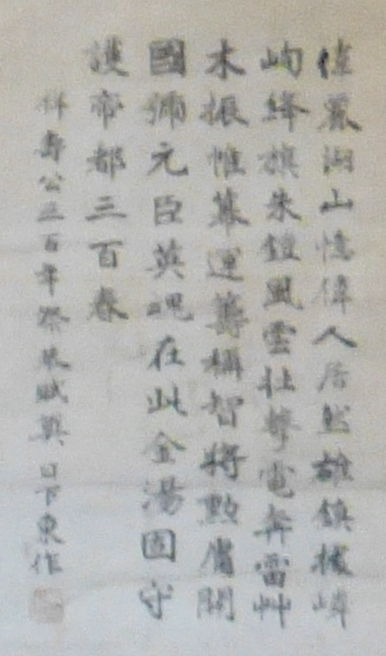 佳麗湖山憶偉人居然雄鎮嶙
峋絳旗朱鎧風雲壯掣電奔雷艸
木振帷幕運籌稱智將勲庸開
國號元臣英魂在此金湯固守
護帝都三百春
祥壽公三百年祭恭賦奠 日下東作